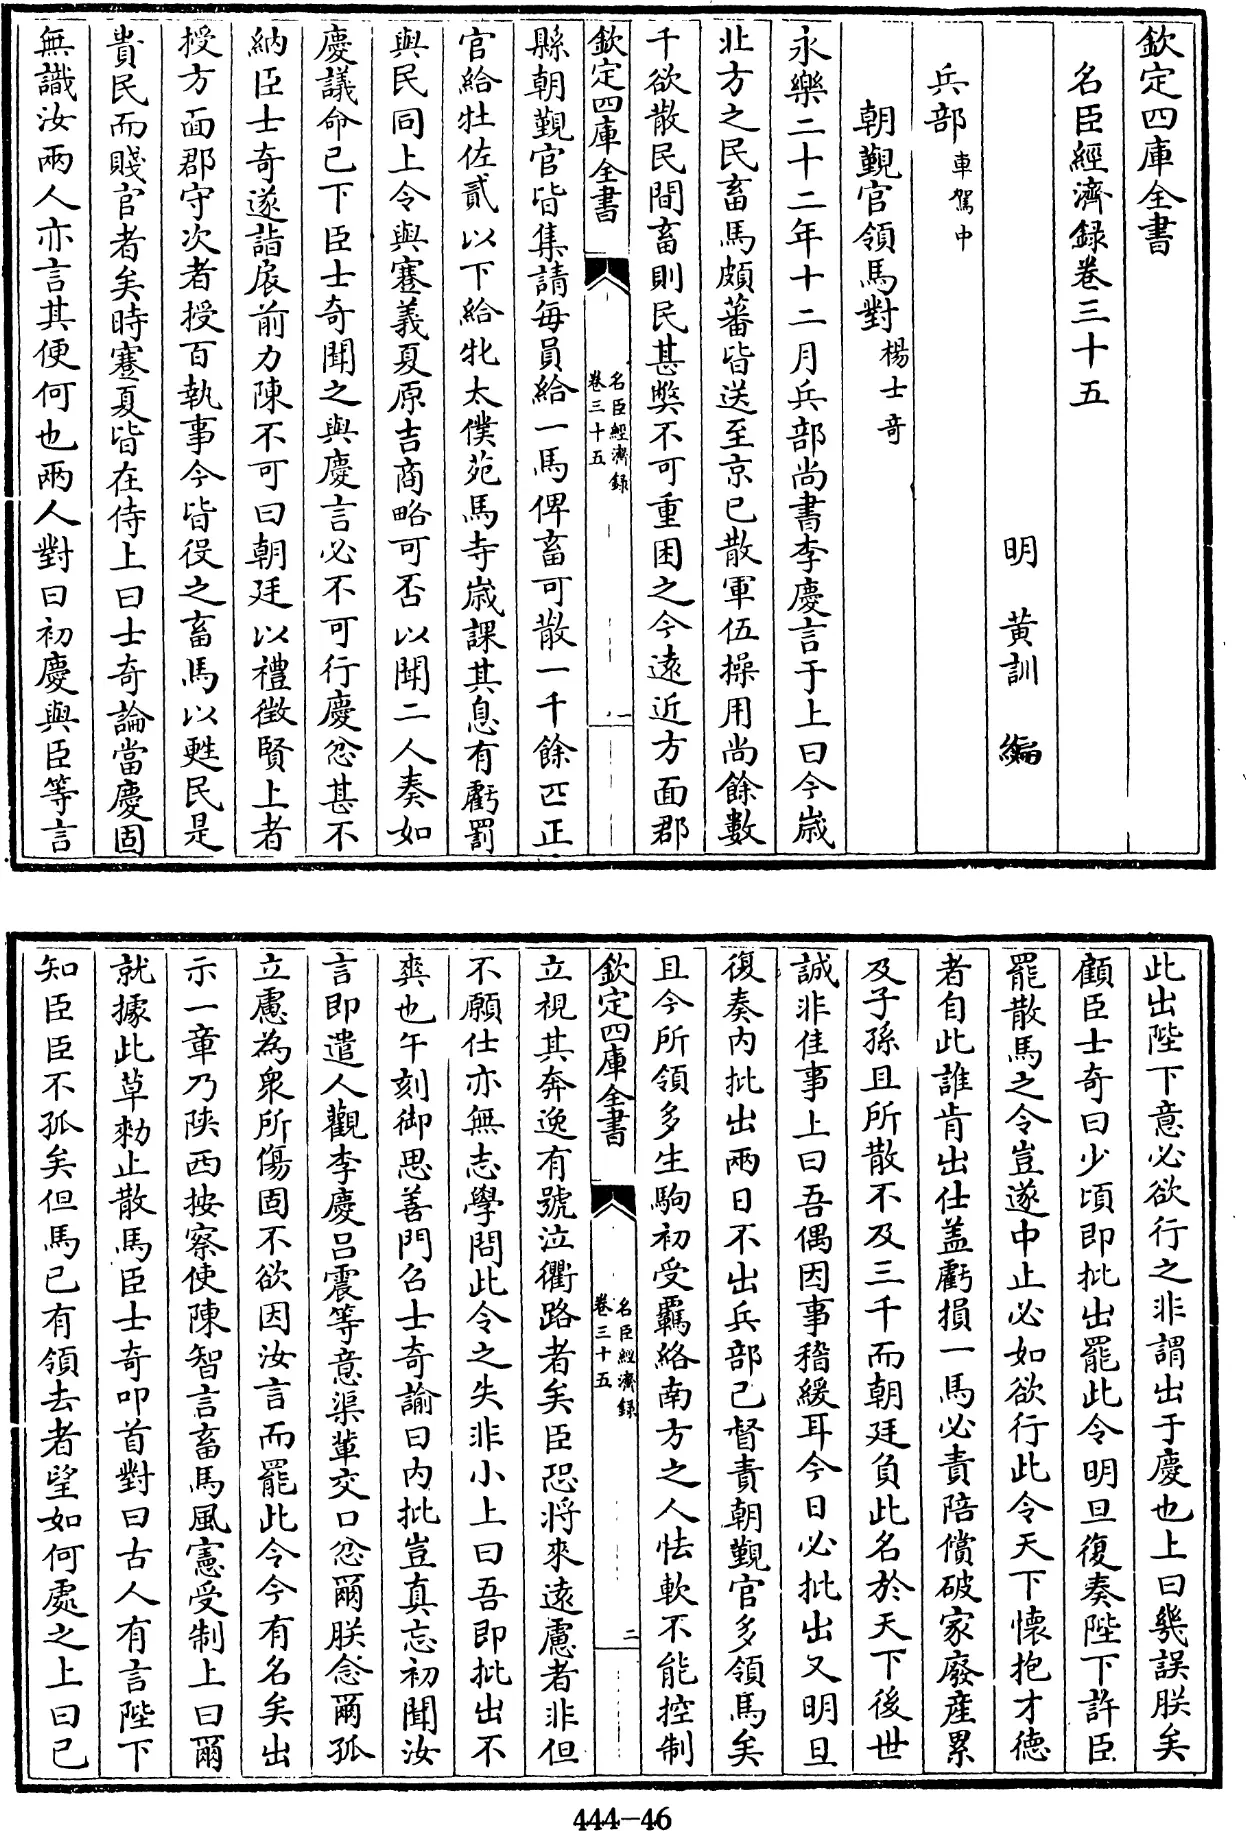 欽定四庫全書
名臣經濟録卷三十五
明 黄訓 編
兵部車駕中
朝覲官領馬對楊士奇
永樂二十二年十二月兵部尚書李慶言于上曰今歳
北方之民畜馬頗蕃皆送至京已散軍伍操用尚餘數
千欲散民間畜則民甚弊不可重困之今逺近方面郡
欽定四庫全書
名臣經濟録
卷三十五
一
縣朝覲官皆集請毎員給一馬俾畜可散一千餘匹正
官給牡佐貳以下給牝太僕苑馬寺歳課其息有虧罰
與民同上令與蹇義夏原吉商略可否以聞二人奏如
慶議命已下臣士奇聞之與慶言必不可行慶忿甚不
納臣士奇遂詣扆前力陳不可曰朝廷以禮徴賢上者
授方面郡守次者授百執事今皆役之畜馬以甦民是
貴民而賤官者矣時蹇夏皆在侍上曰士奇論當慶固
無識汝兩人亦言其便何也兩人對曰初慶與臣等言
此出陛下意必欲行之非謂出于慶也上曰幾誤朕矣
顧臣士奇曰少頃即批出罷此令明旦復奏陛下許臣
罷散馬之令豈遂中止必如欲行此令天下懐抱才徳
者自此誰肯出仕盖虧損一馬必責陪償破家廢產累
及子孫且所散不及三千而朝廷負此名於天下後世
誠非佳事上曰吾偶因事稽緩耳今日必批出又明旦
復奏内批出兩日不出兵部已督責朝覲官多領馬矣
且今所領多生駒初受羈絡南方之人怯軟不能控制
欽定四庫全書
名臣經濟録
卷三十五
二
立視其奔逸有號泣衢路者矣臣恐將來逺慮者非但
不願仕亦無志學問此令之失非小上曰吾即批出不
爽也午刻御思善門召士奇諭曰内批豈真忘初聞汝
言即遣人觀李慶吕震等意渠輩交口忿爾朕念爾孤
立慮為衆所傷固不欲因汝言而罷此令今有名矣出
示一章乃陜西按察使陳智言畜馬風憲受制上曰爾
就據此草勅止散馬臣士奇叩首對曰古人有言陛下
知臣臣不孤矣但馬已有領去者望如何處之上曰已
444-46